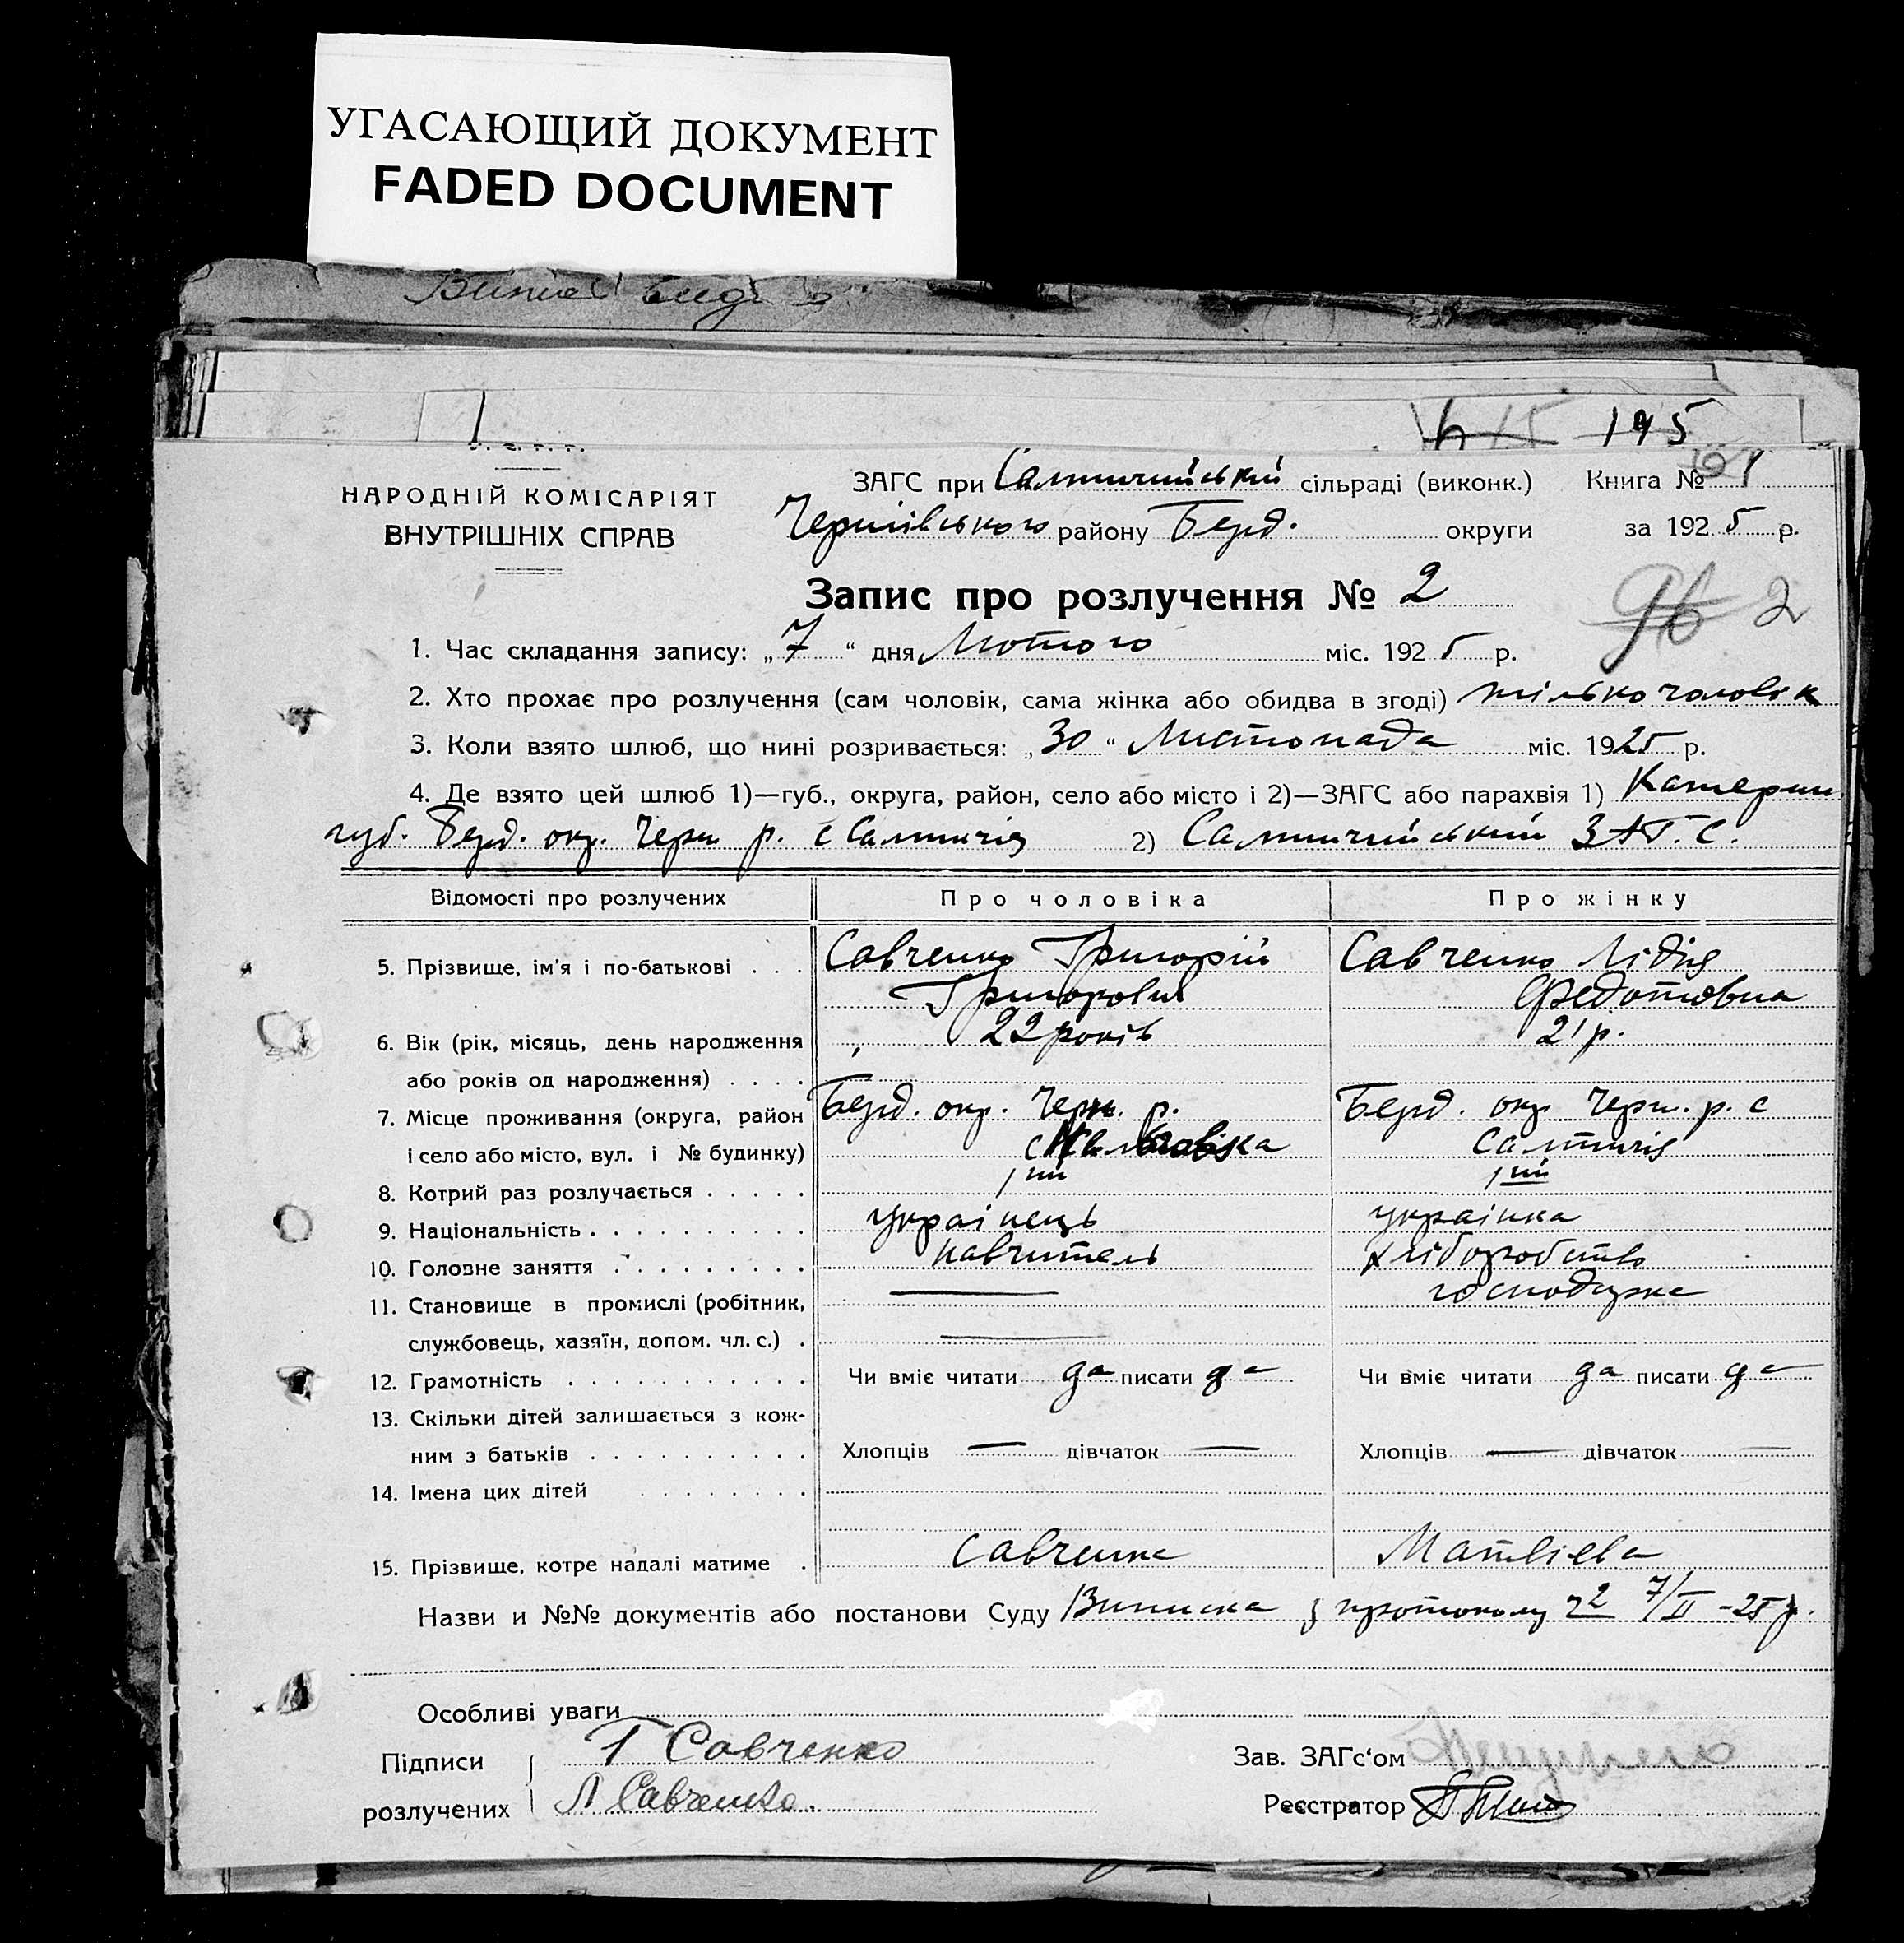 УГАСАЮЩИЙ ДОКУМЕНТ
FADED DOCUMENT
145
НАРОДНІЙ КОМІСАРІЯТ
ВНУТРІШНІХ СПРАВ
ЗАГС при Салтичийський сільраді (виконк.) Книга № 1
Чернівського району Берд. округи за 1925 р.
Запис про розлучення № 2
96 2
1. Час складання запису: „7“ дня Лютого міс. 1925 р.
2. Хто прохає про розлучення (сам чоловік, сама жінка або обидва в згоді) тілько чоловік
3. Коли взято шлюб, що нині розривається: „30“ Листопада міс. 1925 р.
4. Де взято цей шлюб 1)—губ., округа, район, село або місто і 2)—ЗАГС або парахвія 1) Катерин.
губ. Берд. окр. Черн р. с Салтичія 2) Салтичийський ЗАГ.С.
Відомості про розлучених Про чоловіка Про жінку
5. Прізвище, ім'я і по-батькові . . . Савченко Григорій Савченко Лідія
Григорович Федотовна
6. Вік (рік, місяць, день народження 22 років 21 р.
або років од народження) . . . .
7. Місце проживання (округа, район Берд. окр. Черн. р. Берд. окр. Черн. р. с
і село або місто, вул. і № будинку) с Салтичія
8. Котрий раз розлучається . . . . . 1ий 1ий
9. Національність . . . . . . . . . . українець українка
10. Головне заняття . . . . . . . . . навчитель хліборобство
11. Становище в промислі (робітник, — господарка
службовець, хазяїн, допом. чл. с.) . —
12. Грамотність . . . . . . . . . . . Чи вміє читати да писати да Чи вміє читати да писати да
13. Скільки дітей залишається з кож-
ним з батьків . . . . . . . . . . Хлопців — дівчаток — Хлопців — дівчаток —
14. Імена цих дітей . . . . . . . .
15. Прізвище, котре надалі матиме . Савченко Матвієва
Назви и №№ документів або постанови Суду Виписка з протоколу ч2 7/II -25 р.
Особливі уваги
Підписи Г Савченко Зав. ЗАГс‘ом
розлучених Л Савченко. Реєстратор